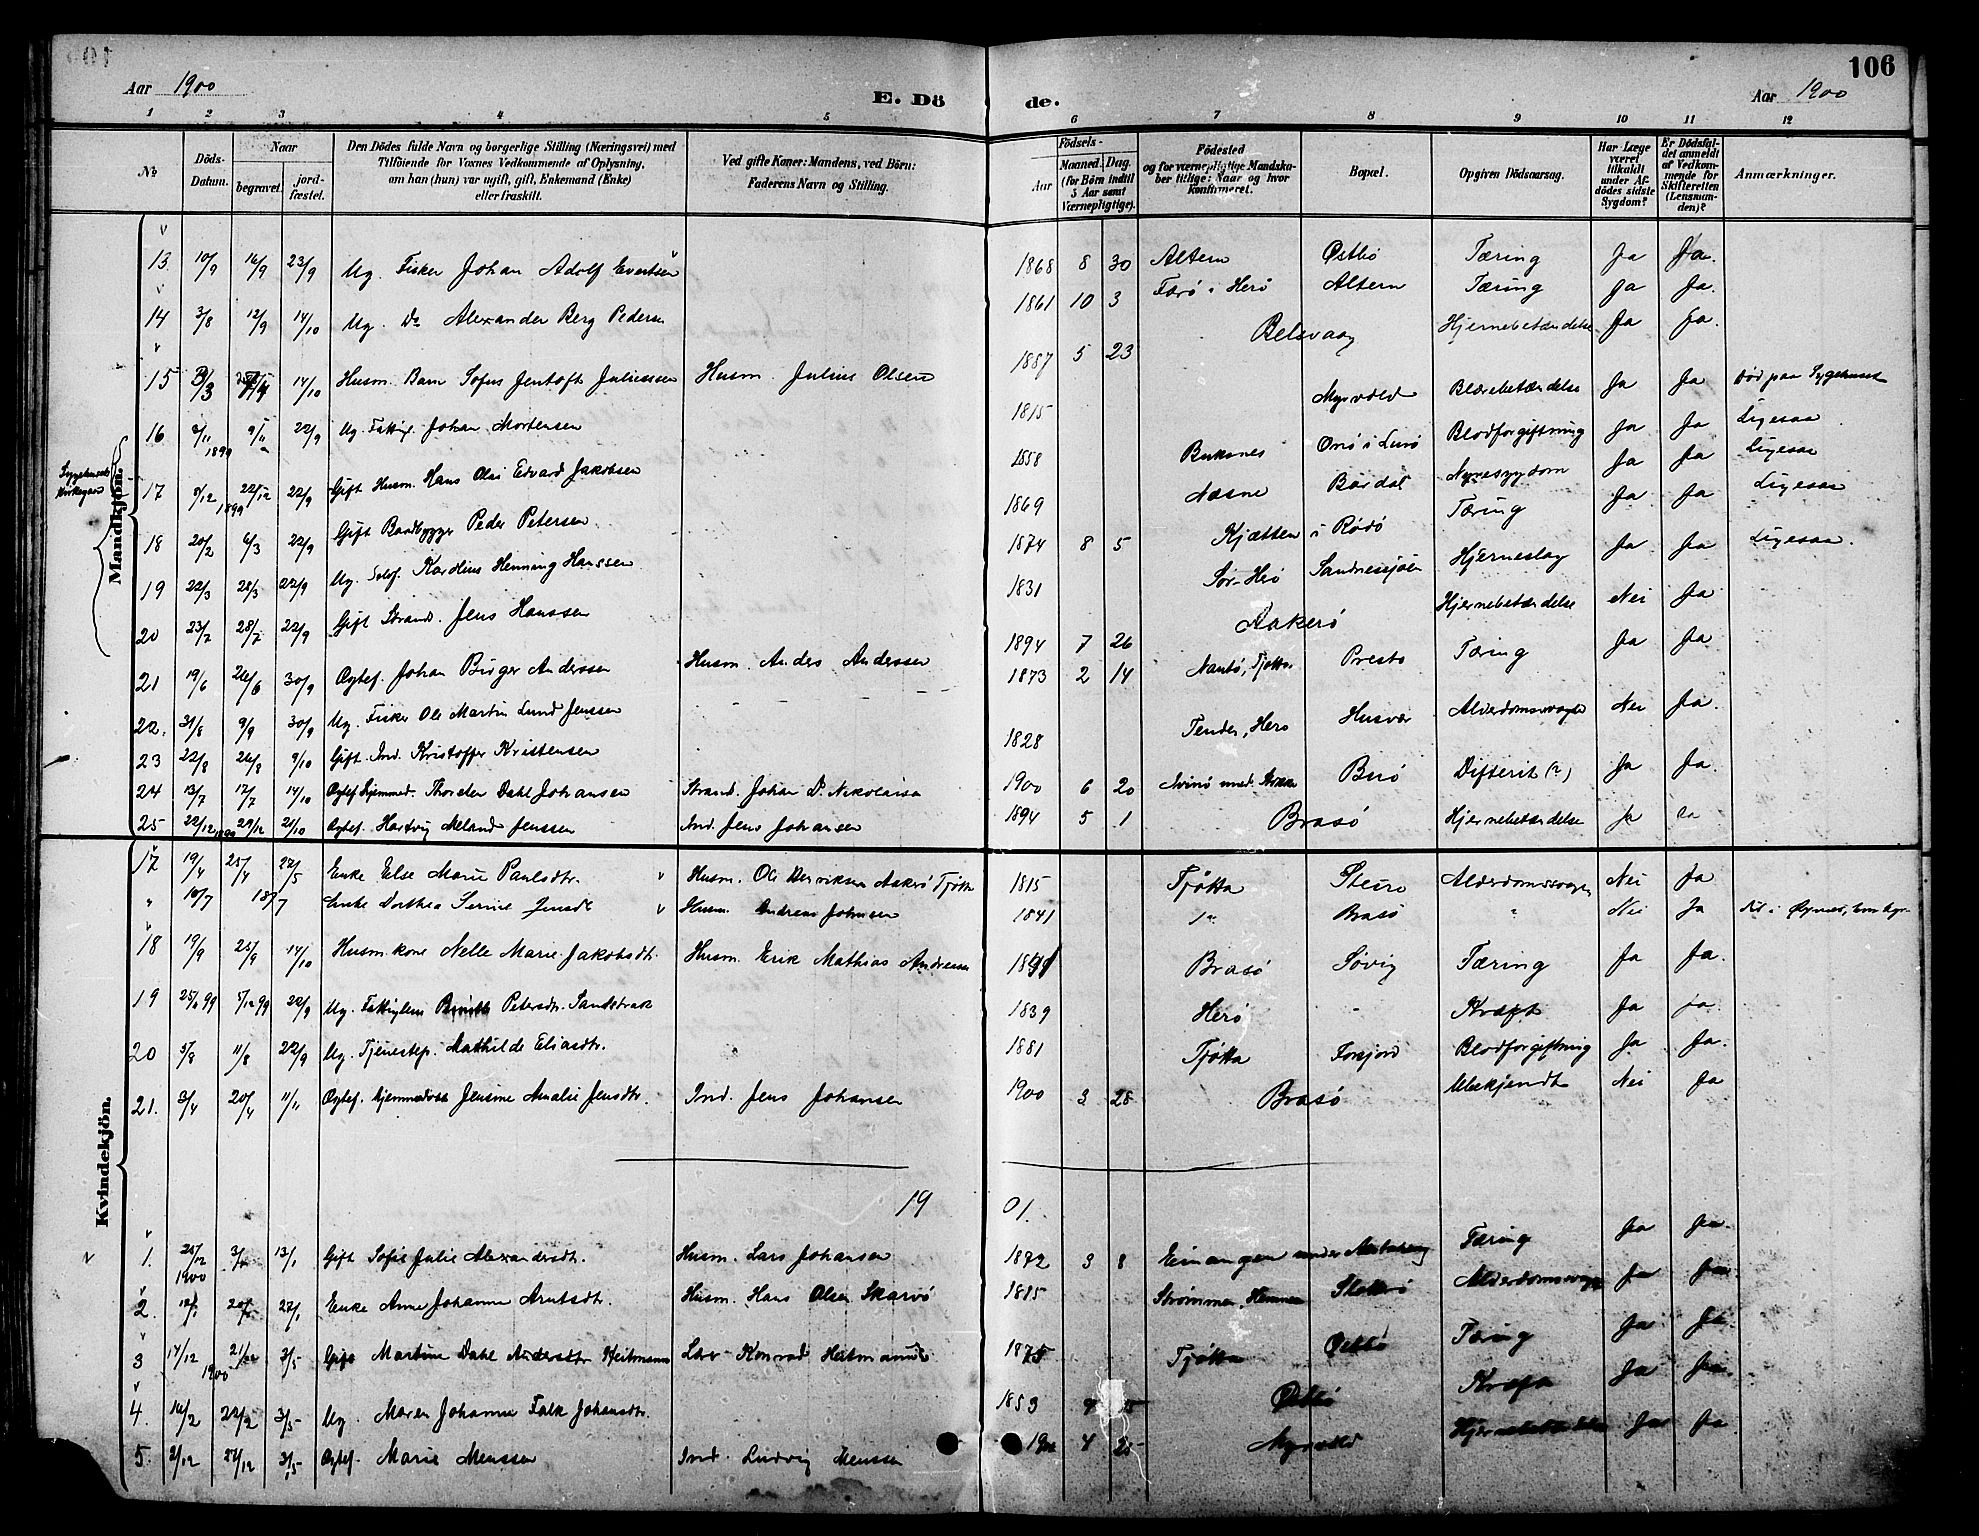 106
Aar 1900
E. Dö
de.
Aar 1900
1 2 3 4 5 6 7 8 9 10 11 12
No
Döds-Datum.
Naar
begravet.
jord-fæstet.
Den Dödes fulde Navn og borgerlige Stilling (Næringsvei) med Tilföiende for Voxnes Vedkommende af Oplysning, om han (hun) var ugift, gift, Enkemand (Enke) eller fraskilt.
Ved gifte Koner: Mandens, ved Börn: Faderens Navn og Stilling.
Födsels-
Aar
Maaned. Dag.
(for Börn indtil 5 Aar samt Værnepligtige).
Födested og for værnepligtige Mandskaber tillige: Naar og hvor konfirmeret.
Bopæl.
Opgiven Dödsaarsag.
Har Læge været tilkaldt under Afdödes sidste Sygdom?
Er Dödsfaldet anmeldt af Vedkommende for Skifteretten (Lensmanden)?
Anmærkninger.
Mandkjön.
13 10/9 16/9 23/9 Ug. Fisker Johan Adolf Evertsen 1868 8 30 Altern Østbø Tæring Ja Ja.
14 3/8 12/9 14/10 Ug. Do Alexander Berg Peders 1861 10 3 Færø i Herø Altern Tæring Ja Ja.
15 14/10 Husm. Barn Sofus Jentoft Juliussen Husm. Julius Olsen 1887 5 23 Belsvaag Hjernebetændelse Ja Ja.
16 1899 22/9 Ug. Fattigl. Johan Mortensen 1815 Myrvold Blærebetændelse Ja Ja Död paa Sygehuset
Sygehusets Kirkegaard
17 9/12 1899 22/12 22/9 Gift Husm. Hans Olai Edvard Jakobsen 1858 Buksnes Onø i Lurø Blodforgiftning Ja Ja Ligesaa
18 20/2 6/3 22/9 Gift Baadbygger Peder Petersen 1869 Næsne Bardal Nyresygdom Ja Ja Ligesaa
19 22/3 28/3 22/9 Ug. Karolius Henning Hanssen 1874 8 5 Kjætten i Rødø Tæring Ja Ja Ligesaa
20 23/7 28/7 22/9 Gift Strands. Jens Hanssen 1831 Sør-Herø Sandnessjøen Hjerneslag Ja Ja Ligesaa.
21 19/6 26/6 30/9 Ægtef. Johan Birger Anderssen Husm. Anders Anderssen 1894 7 26 Aakerø Hjernebetændelse Nei Ja
22. 31/8 9/9 30/9 Ug. Fisker Ole Martin Lund Jenssen 1873 2 14 Tjøtta Presto Tæring Ja Ja
23 22/8 26/8 9/10 Gift. Ind. Kristoffer Kristensen 1828 Tenden, Herø Husvær Alderdomssvaghed Nei Ja.
24 13/7 17/7 14/10 Ægtef. Hjemmed. Thorder Dahl Johansen Strand. Johan D. Nikolaisen 1900 6 20 Burø Difterit (?) Ja Ja.
25 22/12 1899 29/12 2/10 Ægtef. Hartvig Meland Jenssen Ind. Jens Johansen 1894 5 1 Brasø Hjernebetændelse Ja Ja
Kvindekjön.
17 19/4 25/4 27/5 Enke Else Marie Paulsdtr. Husm. Ole Henriksen Aakerø Tjøtta 1815 Tjøtta Steiro Alderdomssvaghed Nei Ja
" 10/7 18/7 Enke Dorthea Serine Jensdt. Husm. Andreas Johnsen 1841 Do Brasø " Nei Ja
18 19/9 25/9 14/10 Husm. kone Nelle Marie Jakobsdtr. Husm. Erik Mathias Andreassen Brasø Søvig Tæring Ja Ja.
19 99 5/12 99 22/9 Ug. Fattiglem Petersdtr. Sandstrak 1839 Herø - Kræft Ja Ja.
20 5/8 11/8 22/9 Ug. Tjenestep. Mathilde Eliasdtr. 1881 Tjøtta Forsjord Blodforgiftning Ja Ja.
21. 3/4 20/4 11/11 Ægtef. hjemmedøbt Jensine Amalie Jensdtr. Ind. Jens Johansen 1900 3 28 Brasø Ubekjendt Nei Ja
1901.
1. 25/12 1900 3/1 13/1 Gift Sofie Julie Alexandersdtr. Husm. Lars Johansen 1872 3 8 Einangen under Tæring Ja Ja.
2. 12/1 20/1 27/1 Enke Anne Johanna Arntsdtr. Husm. Hans Olsen Skarvø 1815 Strømmen, Alderdomssvaghed Ja Ja.
3 17/12 1900 21/12 3/5 Gift Martine Dahl Andersdtr Heitmann Konrad Heitmann 1875 Tjøtta Østbø Tæring Ja Ja
4. 16/2 22/2 3/5 Ug. Maren Johanna Falk Johansdtr. 1853 Østbø Kræft Ja Ja
5. 2/12 27/12 3/5 Ægtef. Marie Menssen Ind. Ludvig Menssen 4 25 Myrvold Hjernebetændelse Ja Ja